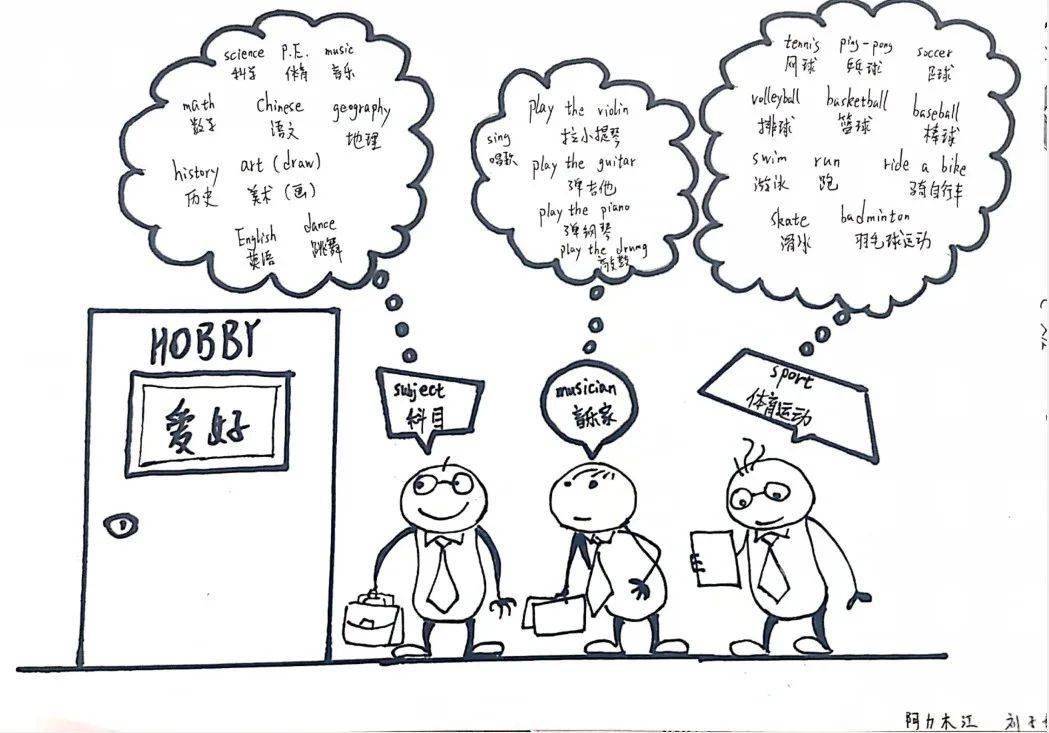 science P.E. music
科学 体育 音乐
math Chinese geography
数学 语文 地理
history art (draw)
历史 美术 (画)
English dance
英语 跳舞
play the violin
拉小提琴
sing
唱歌
play the guitar
弹吉他
play the piano
弹钢琴
play the drums
敲鼓
tennis ping-pong soccer
网球 乒球 足球
volleyball basketball baseball
排球 篮球 棒球
swim run ride a bike
游泳 跑 骑自行车
skate badminton
滑冰 羽毛球运动
HOBBY
爱好
subject
科目
musician
音乐家
sport
体育运动
阿力木江 刘子